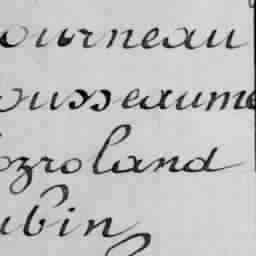 ourneau
ousseaume
ozroland
ubin